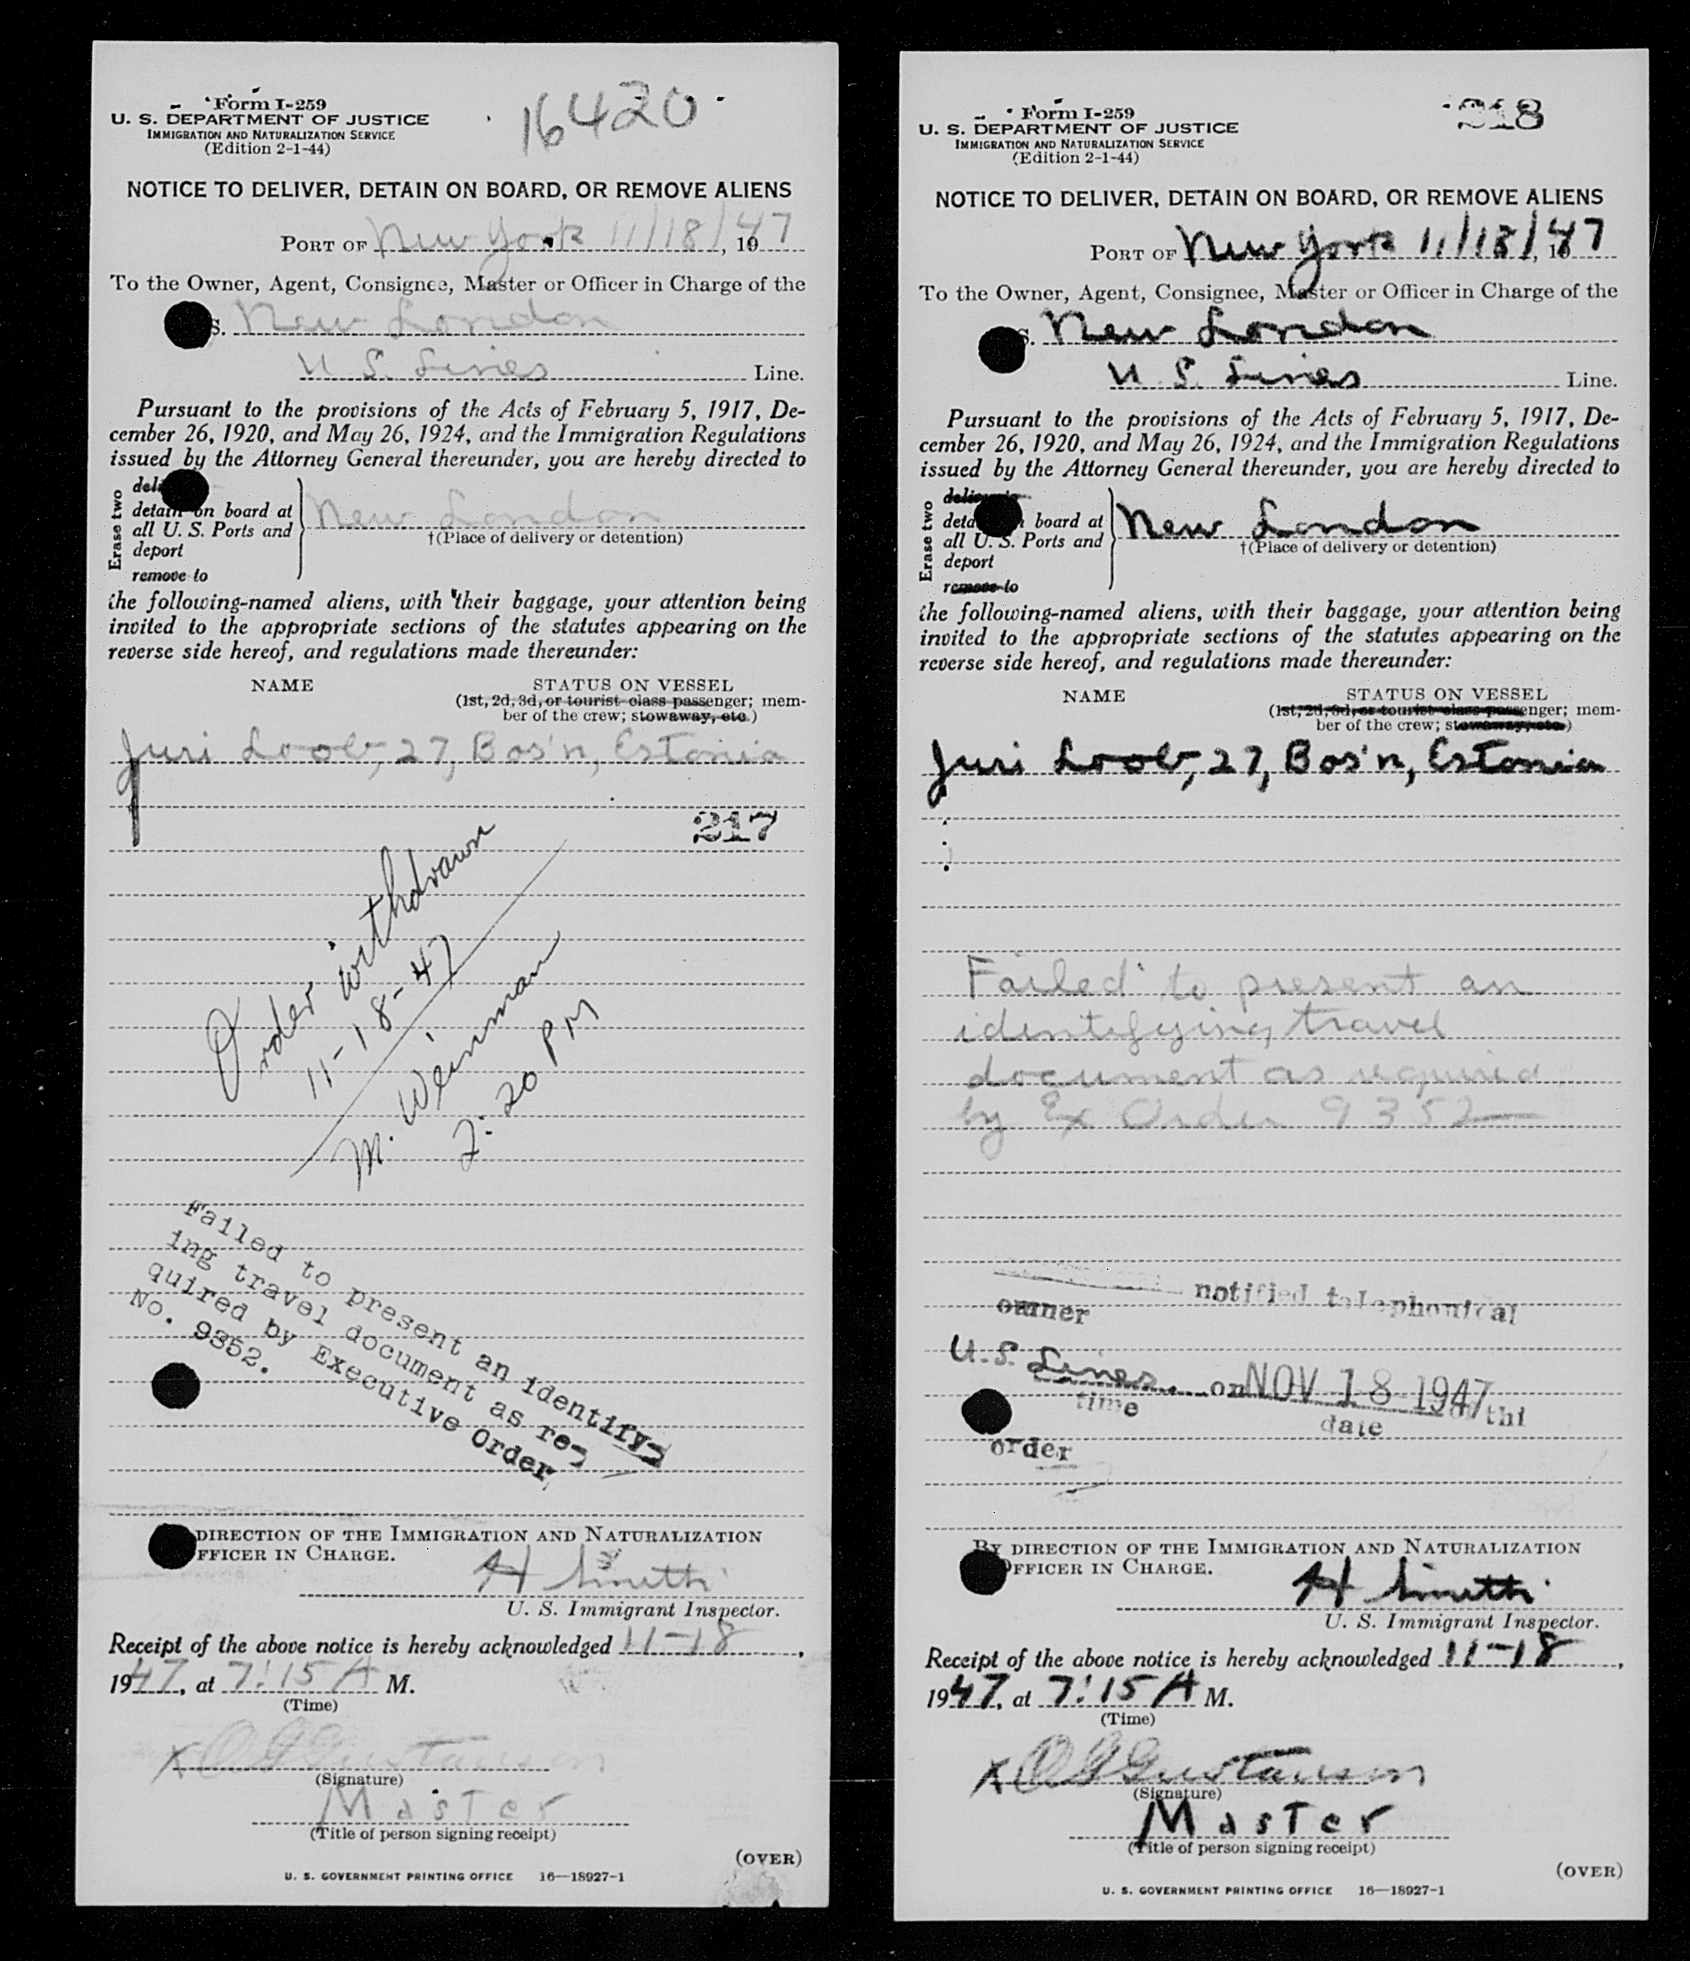 Form I-259
U. S. DEPARTMENT OF JUSTICE
IMMIGRATION AND NATURALIZATION SERVICE
(Edition 2-1-44)
16420
NOTICE TO DELIVER, DETAIN ON BOARD, OR REMOVE ALIENS
PORT OF New York 11/18/47, 19
To the Owner, Agent, Consignee, Master or Officer in Charge of the
S. New London
U S. Lines Line.
Pursuant to the provisions of the Acts of February 5, 1917, De-
cember 26, 1920, and May 26, 1924, and the Immigration Regulations
issued by the Attorney General thereunder, you are hereby directed to
Erase two
detain on board at
all U. S. Ports and
deport
remove to
New London
†(Place of delivery or detention)
the following-named aliens, with their baggage, your attention being
invited to the appropriate sections of the statutes appearing on the
reverse side hereof, and regulations made thereunder:
NAME STATUS ON VESSEL
(1st, 2d, 3d, or tourist class passenger; mem-
ber of the crew; stowaway, etc.)
Juri Loob, 27, Bos'n, Estonia
217
Order withdrawn
11-18-47
M. Weinman
2:20 PM
Failed to present an identify-
ing travel document as re-
quired by Executive Order
No. 9352.
DIRECTION OF THE IMMIGRATION AND NATURALIZATION
FFICER IN CHARGE.
H Smith
U. S. Immigrant Inspector.
Receipt of the above notice is hereby acknowledged 11-18,
1947, at 7:15 A M.
(Time)
x O G Gustavson
(Signature)
Master
(Title of person signing receipt)
(OVER)
U. S. GOVERNMENT PRINTING OFFICE 16—18927-1
Form I-259
U. S. DEPARTMENT OF JUSTICE
IMMIGRATION AND NATURALIZATION SERVICE
(Edition 2-1-44)
218
NOTICE TO DELIVER, DETAIN ON BOARD, OR REMOVE ALIENS
PORT OF New York 11/18/47, 19
To the Owner, Agent, Consignee, Master or Officer in Charge of the
S. New London
U. S. Lines Line.
Pursuant to the provisions of the Acts of February 5, 1917, De-
cember 26, 1920, and May 26, 1924, and the Immigration Regulations
issued by the Attorney General thereunder, you are hereby directed to
Erase two
board at
all U. S. Ports and
deport
remove to
New London
†(Place of delivery or detention)
the following-named aliens, with their baggage, your attention being
invited to the appropriate sections of the statutes appearing on the
reverse side hereof, and regulations made thereunder:
NAME STATUS ON VESSEL
(1st, 2d, 3d, or tourist class passenger; mem-
ber of the crew; stowaway, etc.)
Juri Loob, 27, Bos'n, Estonia
Failed to present an
identifying travel
document as required
by Ex Order 9352
notified telephonical
owner
U.S. Lines on NOV 18 1947 of thi
time date
order
BY DIRECTION OF THE IMMIGRATION AND NATURALIZATION
OFFICER IN CHARGE.
H Smith
U. S. Immigrant Inspector.
Receipt of the above notice is hereby acknowledged 11-18,
1947, at 7:15 A M.
(Time)
x O G Gustavson
(Signature)
Master
(Title of person signing receipt)
(OVER)
U. S. GOVERNMENT PRINTING OFFICE 16—18927-1